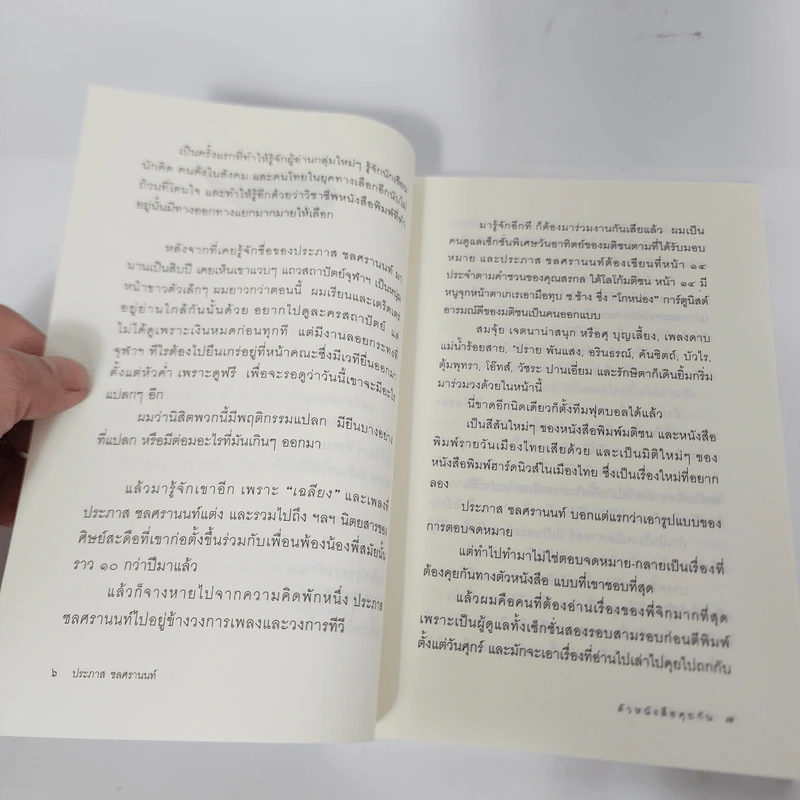 เป็นครั้งแรกที่ทำให้รู้จักผู้อ่านกลุ่มใหม่ๆ รู้จักนักเขียน
นักคิด คนดังในสังคม และคนไทยในยุคทางเลือกอีกนับไม่
ถ้วนที่โดนใจ และทำให้รู้อีกด้วยว่าวิชาชีพหนังสือพิมพ์ที่ทำ
อยู่นั้นมีทางออกทางแยกมากมายให้เลือก
หลังจากที่เคยรู้จักชื่อของประภาส ชลศรานนท์ มา
นานเป็นสิบปี เคยเห็นเขาแวบๆ แถวสถาปัตย์จุฬาฯ เป็นหนุ่ม
หน้าขาวตัวเล็กๆ ผมยาวกว่าตอนนี้ ผมเรียนและเตร็ดเตร่
อยู่ย่านใกล้กันนั้นด้วย อยากไปดูละครสถาปัตย์ แต่
ไม่ได้ดูเพราะเงินหมดก่อนทุกที แต่มีงานลอยกระทงที่
จุฬาฯ ทีไรต้องไปยืนเกร่อยู่ที่หน้าคณะซึ่งมีเวทียื่นออกมา
ตั้งแต่หัวค่ำ เพราะดูฟรี เพื่อจะรอดูว่าวันนี้เขาจะมีอะไร
แปลกๆ อีก
ผมว่านิสิตพวกนี้มีพฤติกรรมแปลก มียีนบางอย่าง
ที่แปลก หรือมีต่อมอะไรที่มันเกินๆ ออกมา
แล้วมารู้จักเขาอีก เพราะ “เฉลียง” และเพลงที่
ประภาส ชลศรานนท์แต่ง และรวมไปถึง ฯลฯ นิตยสารของ
ศิษย์สะดือที่เขาก่อตั้งขึ้นร่วมกับเพื่อนพ้องน้องพี่สมัยนั้น
ราว ๑๐ กว่าปีมาแล้ว
แล้วก็จางหายไปจากความคิดพักหนึ่ง ประภาส
ชลศรานนท์ไปอยู่ข้างวงการเพลงและวงการทีวี
๖ ประภาส ชลศรานนท์
มารู้จักอีกที ก็ต้องมาร่วมงานกันเสียแล้ว ผมเป็น
คนดูแลเซ็กชั่นพิเศษวันอาทิตย์ของมติชนตามที่ได้รับมอบ
หมาย และประภาส ชลศรานนท์ ต้องเขียนที่หน้า ๑๔
ประจำตามคำชวนของคุณสรกล ได้โลโก้มติชน หน้า ๑๔ มี
หนูจุกหน้าตาเกเรเอามือทุบ ช.ช้าง ซึ่ง “โกหน่อง” การ์ตูนิสต์
อารมณ์ดีของมติชนเป็นคนออกแบบ
สมจุ้ย เจตนาน่าสนุก หรือศุ บุญเลี้ยง, เพลงดาบ
แม่น้ำร้อยสาย, 'ปราย พันแสง, อรินธรณ์, คันชิตถ์, บัวไร,
ตุ้มพุทรา, โอ๊ทส์, วัชระ ปานเอี่ยม และรักษิตาก็เดินยิ้มกริ่ม
มาร่วมวงด้วยในหน้านี้
นี่ขาดอีกนิดเดียวก็ตั้งทีมฟุตบอลได้แล้ว
เป็นสีสันใหม่ๆ ของหนังสือพิมพ์มติชน และหนังสือ
พิมพ์รายวันเมืองไทยเสียด้วย และเป็นมิติใหม่ๆ ของ
หนังสือพิมพ์ฮาร์ดนิวส์ในเมืองไทย ซึ่งเป็นเรื่องใหม่ที่อยาก
ลอง
ประภาส ชลศรานนท์ บอกแต่แรกว่าเอารูปแบบของ
การตอบจดหมาย
แต่ทำไปทำมาไม่ใช่ตอบจดหมาย-กลายเป็นเรื่องที่
ต้องคุยกันทางตัวหนังสือ แบบที่เขาชอบที่สุด
แล้วผมคือคนที่ต้องอ่านเรื่องของพี่จิกมากที่สุด
เพราะเป็นผู้ดูแลทั้งเซ็กชั่นสองรอบสามรอบก่อนตีพิมพ์
ตั้งแต่วันศุกร์ และมักจะเอาเรื่องที่อ่านไปเล่าไปคุยไปถกกับ
ตัวหนังสือคุยกัน ๗